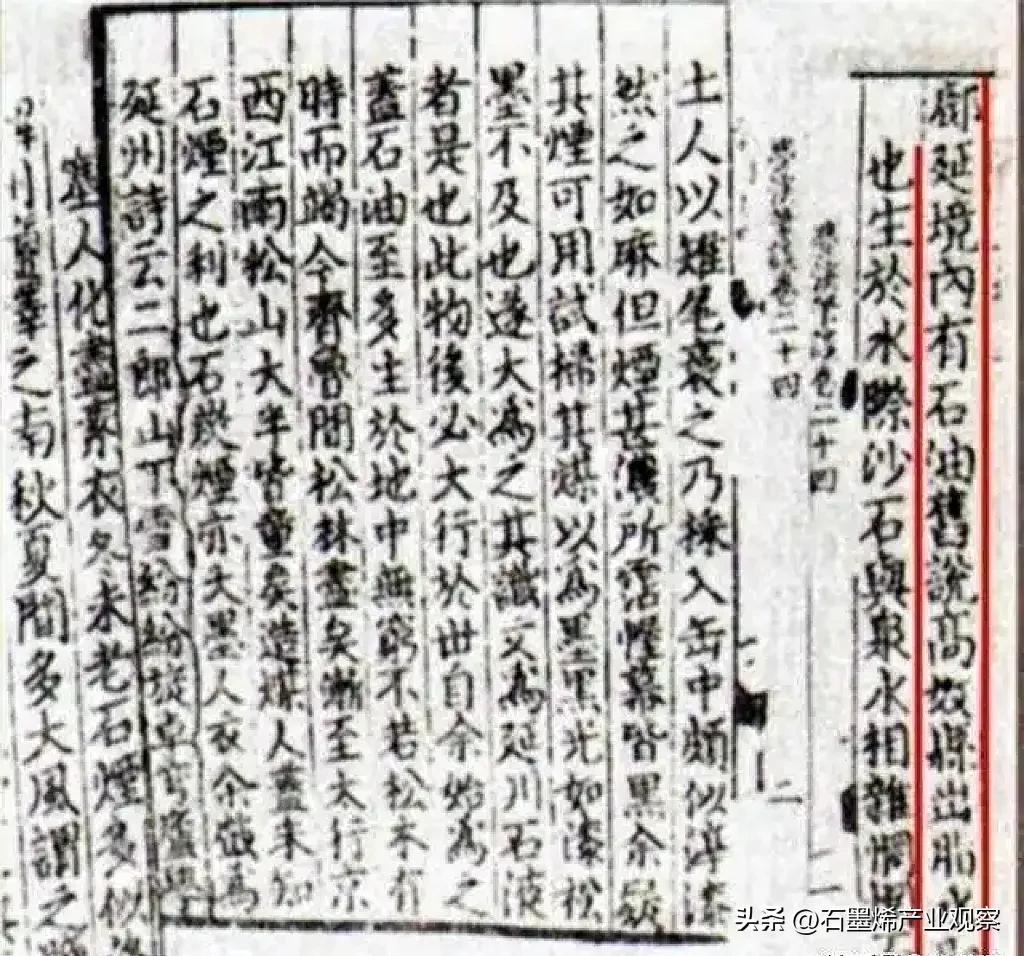 鄜延境內有石油舊說高奴縣出脂水
也生於水際沙石與泉水相雜惘
卷二十四
二
卷二十四
二
土人以雉尾裛之乃採入缶中頗似淳漆
然之如麻但煙甚濃所霑幄幕皆黑余疑
其煙可用試掃其煤以為墨黑光如漆松
墨不及也遂大為之其識文為延川石液
者是也此物後必大行於世自余始為之
蓋石油至多生於地中無窮不若松木有
時而竭今齊魯間松林盡矣漸至太行京
西江南松山大半皆童矣造煤人蓋未知
石煙之利也石炭煙亦大墨人衣余戲為
延州詩云二郎山下雪紛紛旋卓穹廬學
塞人化盡素衣冬未老石煙多似
之南秋夏間多大風謂之
头条 @石墨烯产业观察